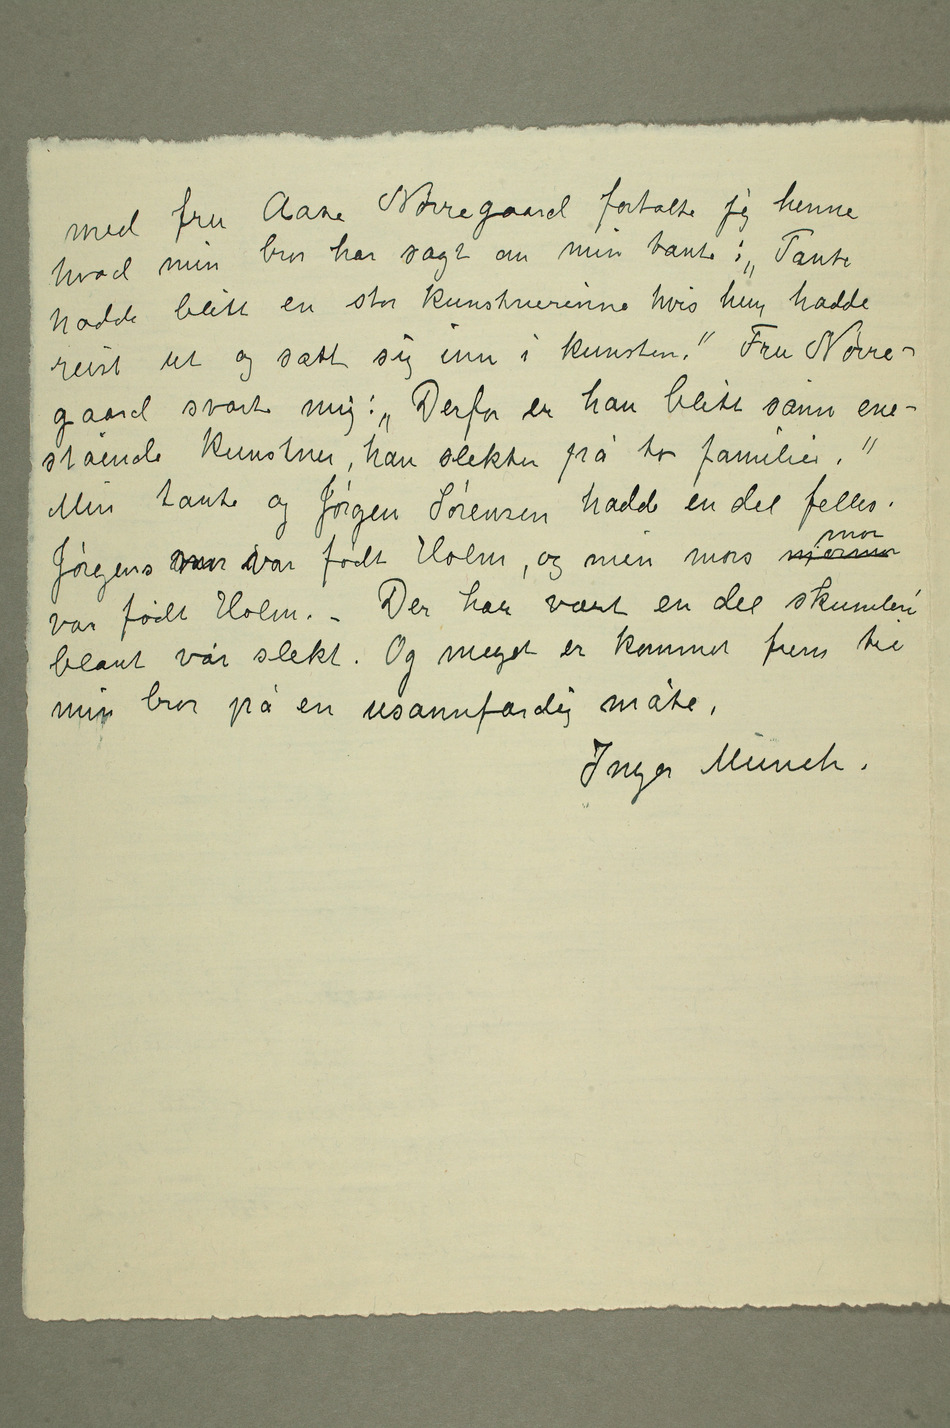 med fru Aase Nørregaard fortalte jeg henne
hvad min bror har sagt om min tante: „Tante
hadde blitt en stor kunstnerinne hvis hun hadde
reist ut og sætt sig inn i kunsten.” Fru Nørre-
gaard svarte mig: „Derfor er han blitt sånn ene-
stående kunstner, han slekter på to familier.”
Min tante og Jørgen Sørensen hadde en del felles.
Jørgens mor var født Holm, og min mors mormor mor
var født Holm. – Der har vært en del skumleri
blant vår slekt. Og meget er kommet frem til
min bror på en usannferdig måte.
Inger Munch.